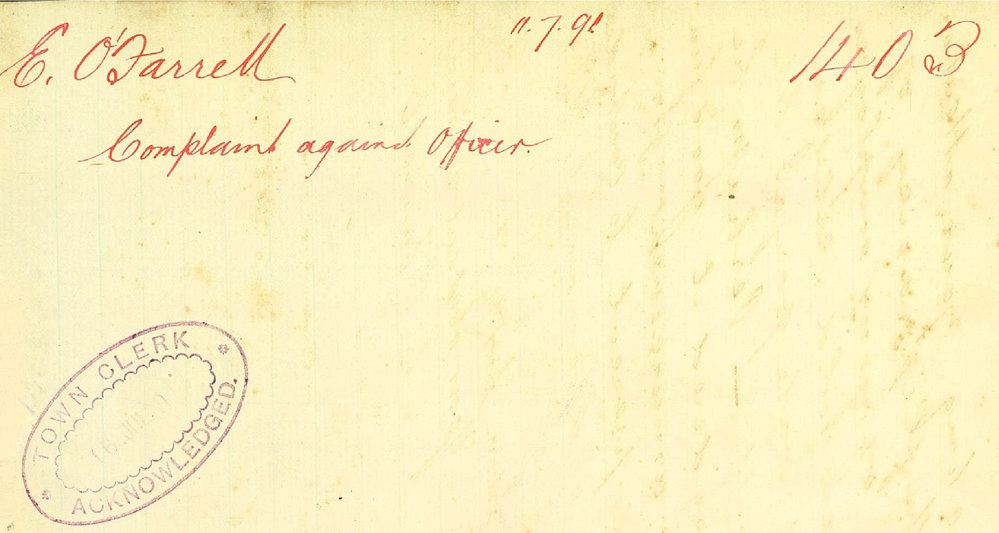 E. O'Farrell 11.7.91 1403
Complaint against Officer.
TOWN CLERK
ACKNOWLEDGED.